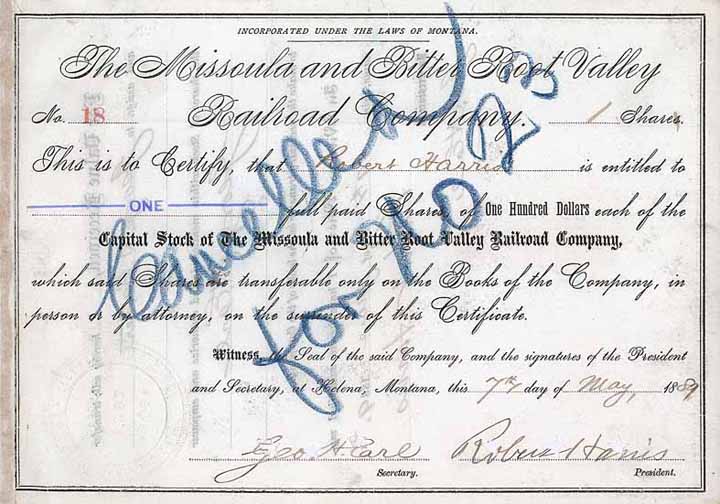 INCORPORATED UNDER THE LAWS OF MONTANA.
The Missoula and Bitter Root Valley
No. 18 Railroad Company. 1 Shares
This is to Certify, that Robert Harris is entitled to
ONE full paid Shares, of One Hundred Dollars each of the
Capital Stock of The Missoula and Bitter Root Valley Railroad Company,
which said Shares are transferable only on the Books of the Company, in
person or by attorney, on the surrender of this Certificate.
Witness, the Seal of the said Company, and the signatures of the President
and Secretary, at Helena, Montana, this 7th day of May, 1889
Geo. H. Earl Robert Harris
Secretary. President.
Cancelled
for No 23